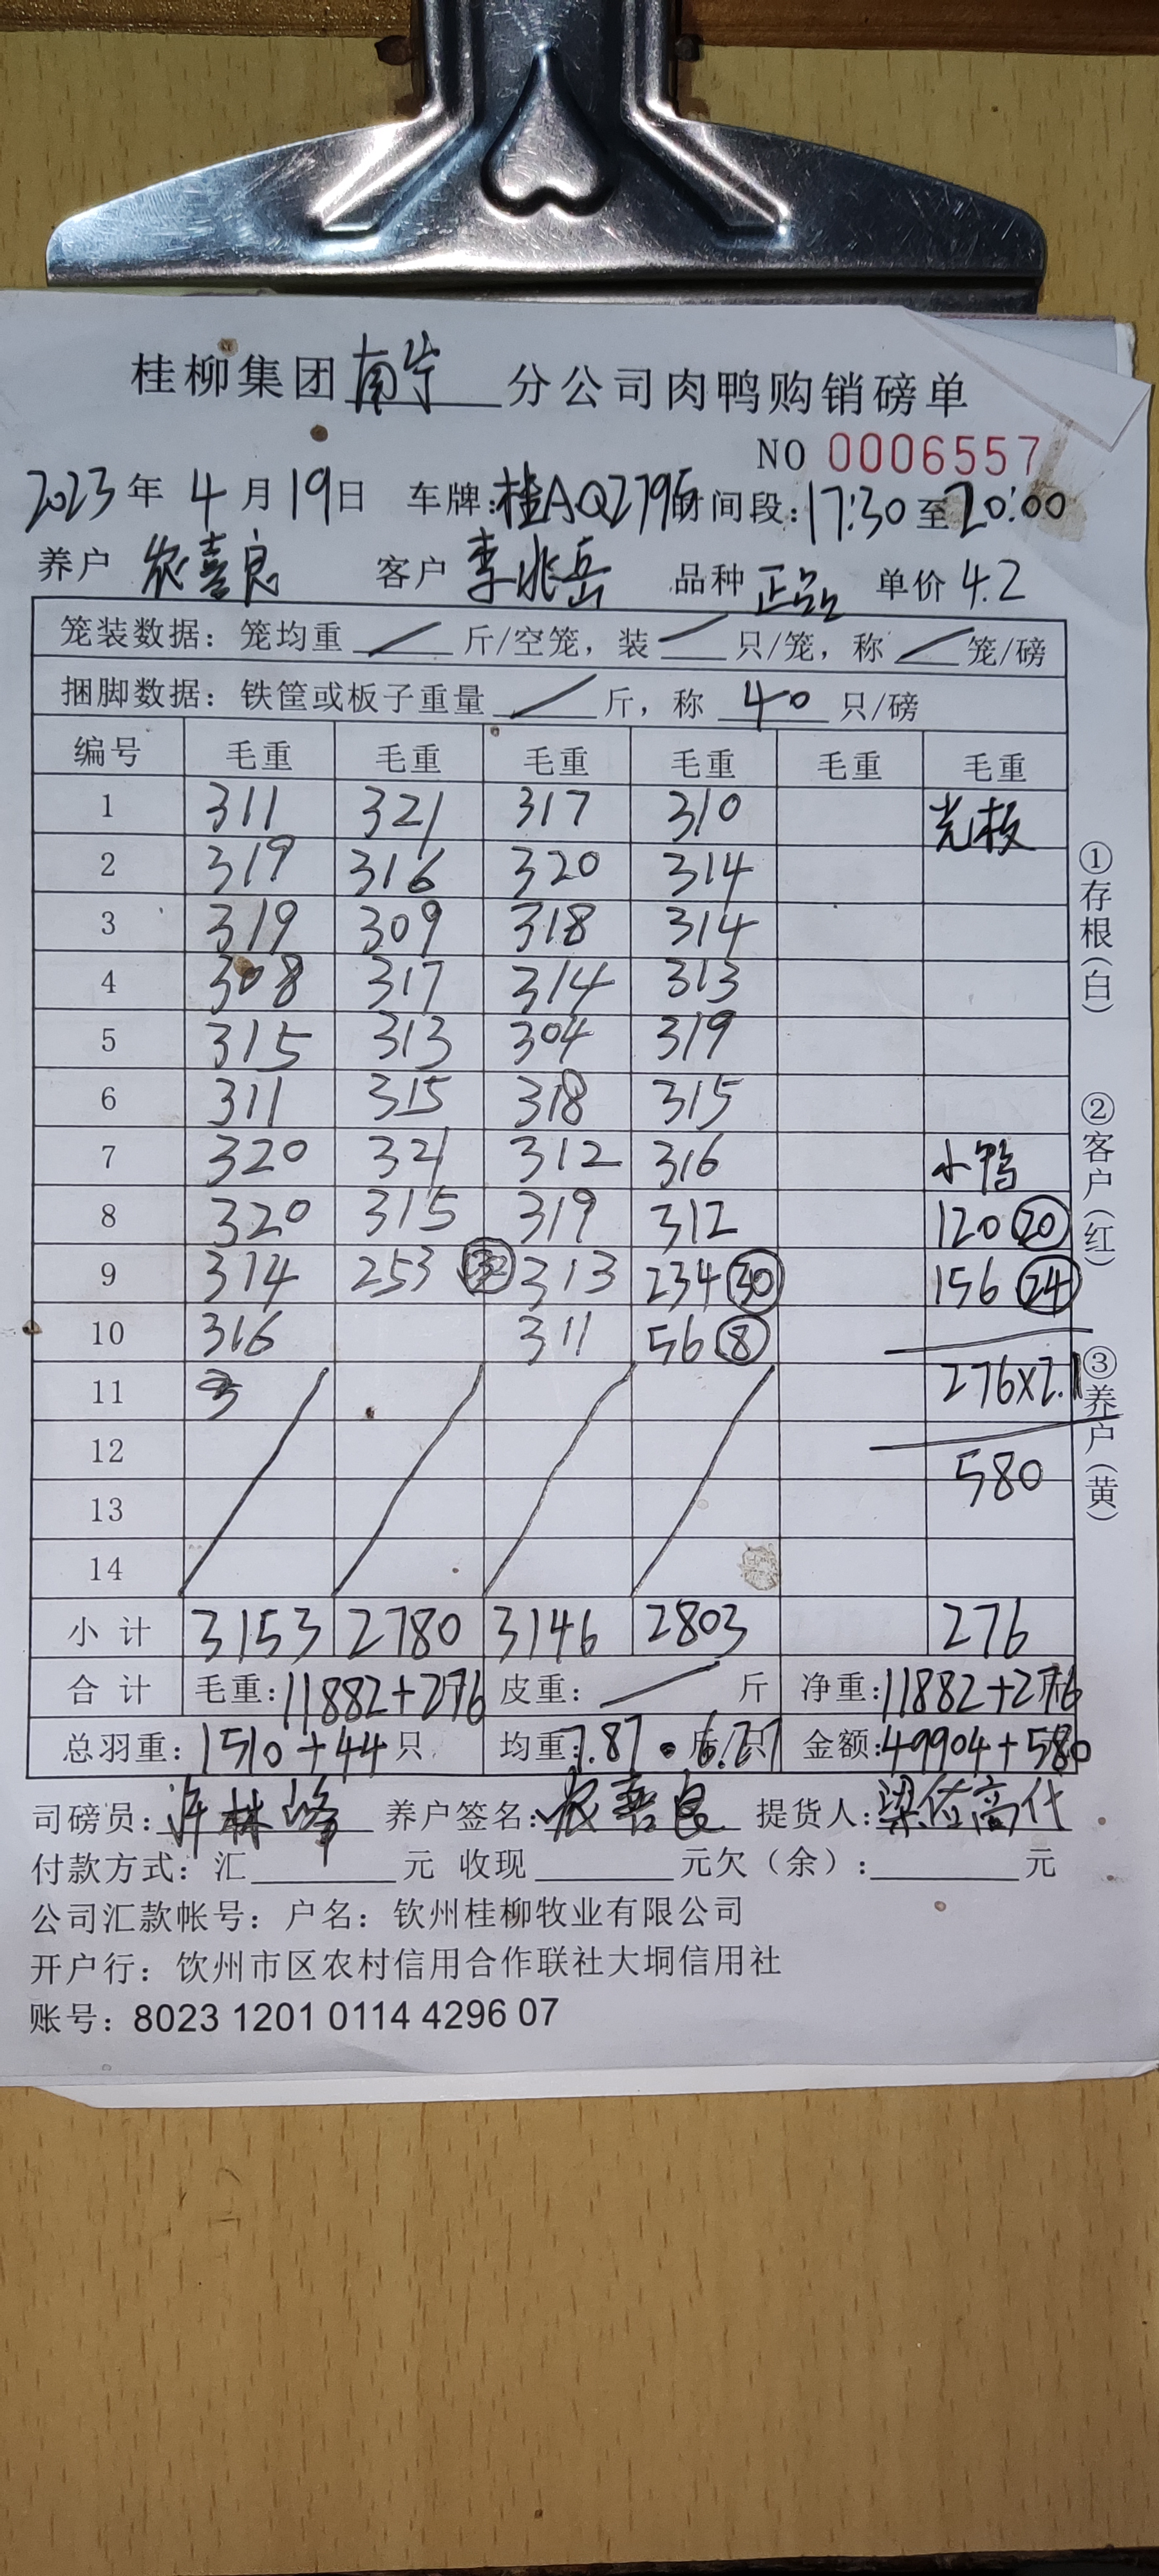 桂柳集团南宁分公司肉鸭购销磅单
NO 0006557
2023年4月19日 车牌:桂AQ279 时间段:17:30至20:00
养户 农喜良 客户 李兆岳 品种 正品 单价 4.2
笼装数据: 笼均重 / 斤/空笼, 装 / 只/笼, 称 / 笼/磅
捆脚数据: 铁筐或板子重量 / 斤, 称 40 只/磅
编号 毛重 毛重 毛重 毛重 毛重 毛重
1 311 321 317 310 光板
2 319 316 320 314
3 319 309 318 314
4 308 317 314 313
5 315 313 304 319
6 311 315 318 315
7 320 321 312 316 小鸭
8 320 315 319 312 120 20
9 314 253 313 234 30 156 24
10 316 311 56 8
11 276×2.1
12 580
13
14
小计 3153 2780 3146 2803 276
合计 毛重:11882+276 皮重: / 斤 净重:11882+276
总羽重:1510+44只 均重:7.87 6.27 金额:49904+580
司磅员:许林峰 养户签名:农喜良 提货人:梁佐高代
付款方式: 汇 元 收现 元欠(余): 元
公司汇款帐号: 户名: 钦州桂柳牧业有限公司
开户行: 钦州市区农村信用合作联社大垌信用社
账号: 8023 1201 0114 4296 07
①存根(白)
②客户(红)
③养户(黄)